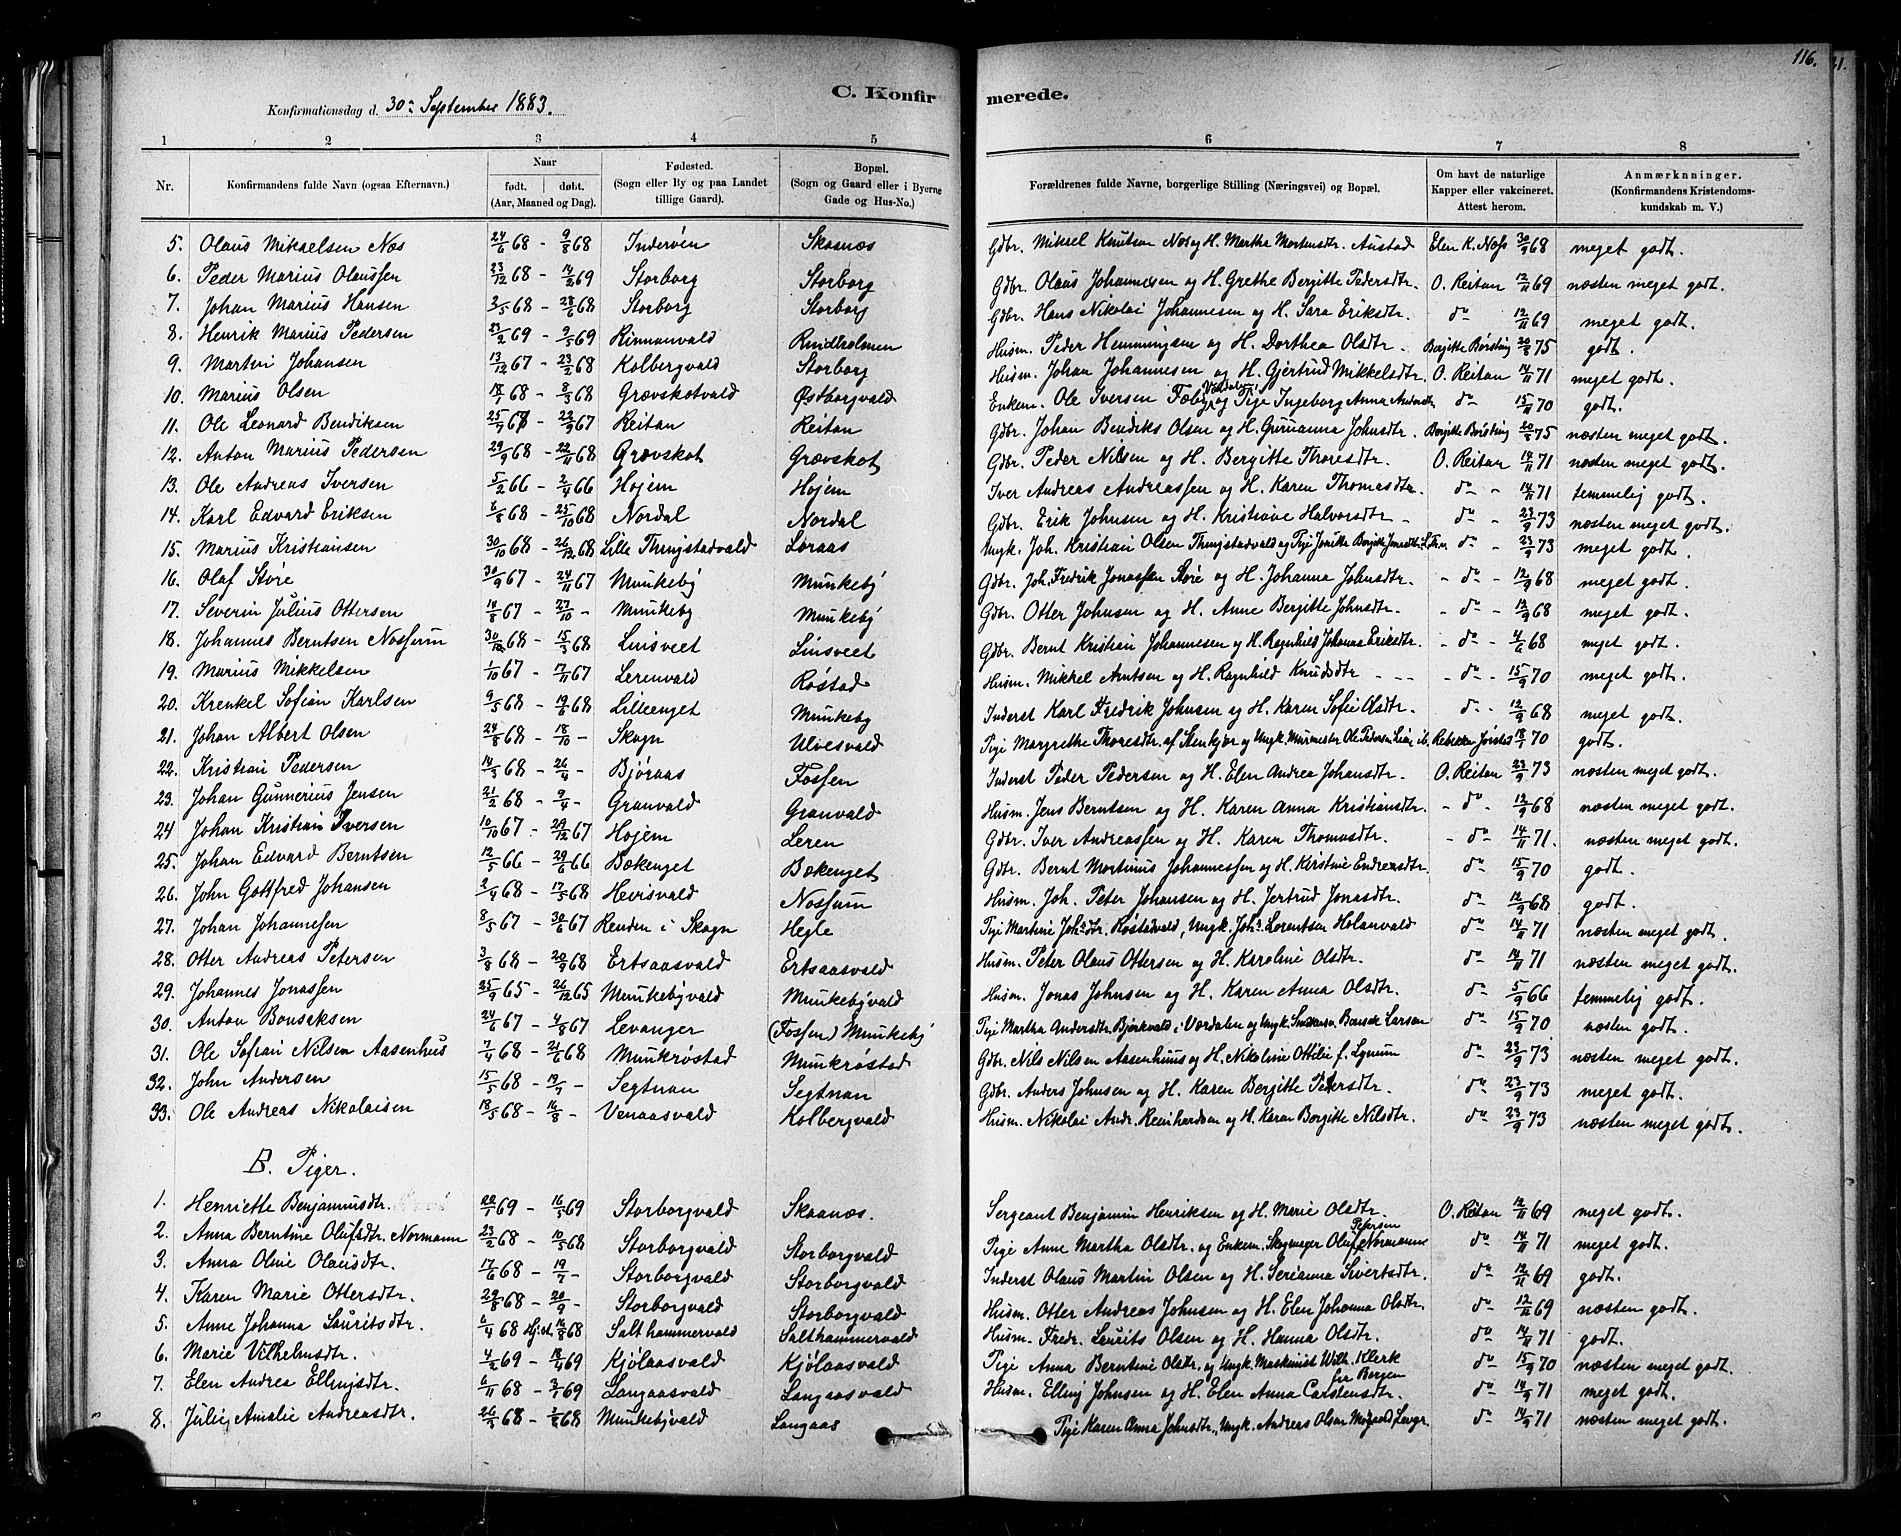 116.
Konfirmationsdag d. 30te September 1883.
C. Konfirmerede.
1 2 3 4 5 6 7 8
Nr. Konfirmandens fulde Navn (ogsaa Efternavn.) Naar født. døbt. (Aar, Maaned og Dag). Fødested. (Sogn eller By og paa Landet tillige Gaard). Bopæl. (Sogn og Gaard eller i Byerne Gade og Hus-No.) Forældrenes fulde Navne, borgerlige Stilling (Næringsvei) og Bopæl. Om havt de naturlige Kapper eller vakcineret. Attest herom. Anmærknninger. (Konfirmandens Kristendomskundskab m. V.)
5. Olaus Mikaelsen Nos 24/6 68 - 9/8 68 Indervén Skaanæs Gdbr. Mikael Knutsen Nos og H. Martha Mortensdtr. Austad Elen K. Noss 30/9 68 meget godt.
6. Peder Marius Olaussen 23/12 68 - 14/2 69 Storborg Storborg Gdbr. Olaus Johannesen og H. Grethe Bergitte Pedersdtr. O. Reitan 12/11 69 næsten meget godt.
7. Johan Marius Hansen 3/5 68 - 28/6 68 Storborg Storborg Gdbr. Hans Nikolai Johannesen og H. Sara Eriksdtr. do 12/11 69 meget godt.
8. Henrik Marius Pedersen 23/2 69 - 9/5 69 Rinnanvald Rindholmen Husm. Peder Hemmingsen og H. Dorthea Olsdtr. Bergitte Børsting 20/8 75 godt.
9. Martin Johansen 13/12 67 - 23/2 68 Kolbergvald Storborg Husm. Johan Johannesen og H. Gjertrud Mikkelsdtr. O. Reitan 14/11 71 meget godt.
10. Marius Olsen 18/1 68 - 8/3 68 Grævskotvald Østborgvald Enkem. Ole Iversen Fæby, Værdalen og Pige Ingeborg Anna Andersdtr. do 15/11 70 godt.
11. Ole Leonard Bendiksen 25/7 67 - 22/9 67 Reitan Reitan Gdbr. Johan Bendiks Olsen og H. Gurianna Johnsdtr. Bergitte Børsting 20/8 75 næsten meget godt.
12. Anton Marius Pedersen 29/9 68 - 22/11 68 Grævskot Grævskot Gdbr. Peder Nilsen og H. Bergitte Thoresdtr. O. Reitan 14/11 71 næsten meget godt.
13. Ole Andreas Iversen 5/2 66 - 2/4 66 Hojem Hojem Iver Andreas Andreassen og H. Karen Thomasdtr. do - 14/11 71 temmelig godt.
14. Karl Edvard Eriksen 6/8 68 - 25/10 68 Nordal Nordal Gdbr. Erik Johnsen og H. Kristiane Halvorsdtr. - do - 23/9 73 næsten meget godt.
15. Marius Kristiansen 30/10 68 - 26/12 68 Lille Thrøjstadvald Loraas Ungk. Joh. Kristian Olsen Thrøjstadvald og Pige Bergitte do - 23/9 73 meget godt.
16. Olaf Støre 30/9 67 - 24/11 67 Munkeby Munkeby Gdbr. Joh. Fredrik Jonassen Støre og H. Johanna Johnsdtr. - do - 12/9 68 meget godt.
17. Severin Julius Ottersen 14/8 67 - 27/10 - Munkeby Munkeby Gdbr. Otter Johnsen og H. Anne Bergitte Johnsdtr. - do - 12/9 68 meget godt.
18. Johannes Berntsen Nossum 30/1 68 - 15/3 68 Linsveet Linsveet Gdbr. Bernt Kristian Johannesen og H. Ragnhild Johanna Eriksdtr. - do - 4/6 68 meget godt.
19. Marius Mikkelsen 1/10 67 - 17/11 67 Lerenvald Røstad Husm. Mikkel Arntsen og H. Ragnhild Knudsdtr - - - - do - 15/9 70 meget godt.
20. Krenkel Sofian Karlsen 9/5 68 - 19/6 68 Lilleenget Munkeby Inderst Karl Fredrik Johnsen og H. Karen Sofie Olsdtr. do - 12/9 68 meget godt.
21. Johan Albert Olsen 24/8 68 - 18/10 - Skogn Ulvesvald Pige Margrethe Thoresdtr. af Stenkjær og Ungk. Murmester Ole Pedersen Rebekka Jørstad 18/1 70 godt.
22. Kristian Pedersen 14/3 68 - 26/4 - Bjøraas Fossen Inderst Peder Pedersen og H. Elen Andrea Johansdtr. O. Reitan 23/9 73 næsten meget godt.
23. Johan Gunnerius Jensen 21/2 68 - 9/4 - Granvald Granvald Husm. Jens Berntsen og H. Karen Anna Kristiansdtr. - do - 12/9 68 næsten meget godt.
24 Johan Kristian Iversen 10/10 67 - 29/12 67 Hojem Leren Gdbr. Iver Andreassen og H. Karen Thomasdtr. - do 14/11 71. næsten meget godt.
25. Johan Edvard Berntsen 12/5 66 - 29/6 66 Bækenget Bækenget Gdbr. Bernt Martinus Johannessen og H. Kristine Endreasdtr. do 15/9 70 godt.
26. John Gottfred Johansen 2/4 68 - 17/5 68 Heirsvald Nossum Husm. Joh. Peter Johansen og H. Jertrud Jonasdtr. do 12/9 68 godt.
27. Johan Johannesen 8/5 67 - 30/6 67 Renden i Skogn Hegle Pige Martine Johsdtr. Røstadvald, Ungk. Johs. Lorentsen Holanvald do 14/11 71 næsten meget godt.
28. Otter Andreas Petersen 3/8 68 - 20/9 68 Ertsaasvald Ertsaasvald Husm. Peter Olaus Ottersen og H. Karoline Olsdtr. do 14/11 71 næsten meget godt.
29. Johannes Jonassen 25/9 65 - 26/12 65 Munkebyvald Munkebyvald Husm. Jonas Johnsen og H. Karen Anna Olsdtr. do 5/9 66 temmelig godt.
30. Anton Bonsaksen 24/6 67 - 4/8 67 Levanger (Fossen) Munkeby Pige Martha Andersdtr. Bjørkvald i Værdalen og Ungk. Bonsak Larsen do 15/9 70 næsten godt.
31. Ole Sofian Nilsen Aasenhus 7/4 68 - 21/6 68 Munkrøstad Munkrøstad Gdbr. Nils Nilsen Aasenhuus og H. Nikoline Ottilie f. Lynum do 23/9 73 næsten meget godt.
32. John Andersen 15/5 68 - 19/7 - Segtnan Segtnan Gdbr. Anders Johnsen og H. Karen Bergitte Petersdtr. do 23/9 73 meget godt.
33. Ole Andreas Nikolaisen 18/5 68 - 16/8 - Venaasvald Kolbergvald Husm. Nikolai Andr. Reinhardsen og H. Karen Bergitte Nilsdtr. do 23/9 73 næsten meget godt.
B. Piger.
1. Henriette Benjaminsdtr. 20/1 69 - 16/5 69 Storborgvald Skaanæs. Sergeant Benjamin Henriksen og H. Marie Olsdtr. O. Reitan 12/11 69 meget godt.
2. Anna Berntine Olufsdtr. Normann 23/2 68 - 10/5 68 Storborgvald Storborgvald Pige Anne Martha Olsdtr. og Enkem. Skomager Oluf Petersen Normanne do 14/11 71 meget godt.
3. Anna Oline Olausdtr. 17/6 68 - 19/7 - Storborgvald Storborgvald Inderst Olaus Martin Olsen og H. Serianna Sivertsdtr. do 12/11 69 godt.
4. Karen Marie Ottersdtr. 29/8 68 - 20/9 - Storborgvald Storborgvald Husm. Otter Andreas Johnsen og H. Elen Johanna Olsdtr. do 12/11 69 næsten godt.
5. Anne Johanna Lauritsdtr. 6/4 68 Hj.st. 16/8 68 Salthammervald Salthammervald Husm. Fredr. Laurits Olsen og H. Hanna Olsdtr. do 14/11 71 godt.
6. Marie Vilhelmsdtr. 4/2 69 - 18/4 69 Kjølaasvald Kjølaasvald Pige Anna Berntine Olsdtr. og Ungk. Maskinist Wilh. Klerk fra Bergen do 15/9 70 næsten meget godt.
7. Elen Andrea Ellingsdtr. 6/11 68 - 3/1 69 Langaasvald Langaasvald Husm. Elling Johnsen og H. Elen Anna Carstensdtr. do 14/9 71 meget godt.
8. Julie Amalie Andreasdtr. 26/5 68 - 2/8 68 Munkebyvald Langaas Pige Karen Anna Johnsdtr., Ungk. Andreas Olsen Levgr. do 14/9 71 næsten meget godt.